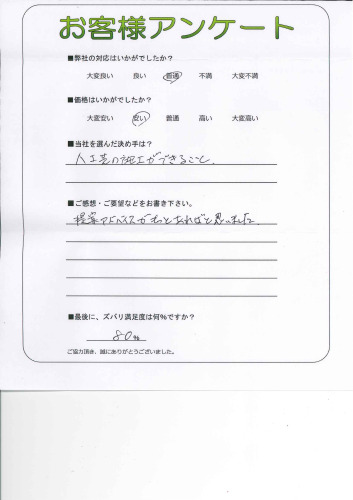 お客様アンケート
■弊社の対応はいかがでしたか?
大変良い 良い 普通 不満 大変不満
■価格はいかがでしたか?
大変安い 安い 普通 高い 大変高い
■当社を選んだ決め手は?
人工芝の施工ができること。
■ご感想・ご要望などをお書き下さい。
提案アドバイスがもっとあればと思いました。
■最後に、ズバリ満足度は何%ですか?
80%
ご協力頂き、誠にありがとうございました。